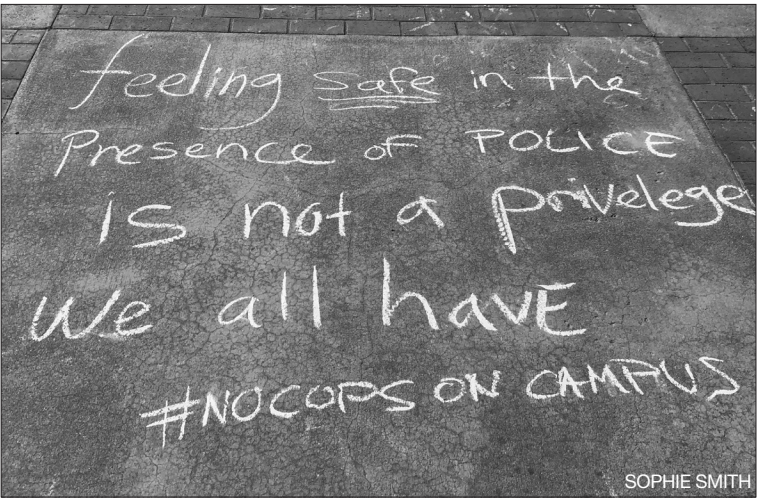 feeling safe in the
Presence of POLICE
is not a privelege
we all havE
#NOCOPS ON CAMPUS
SOPHIE SMITH